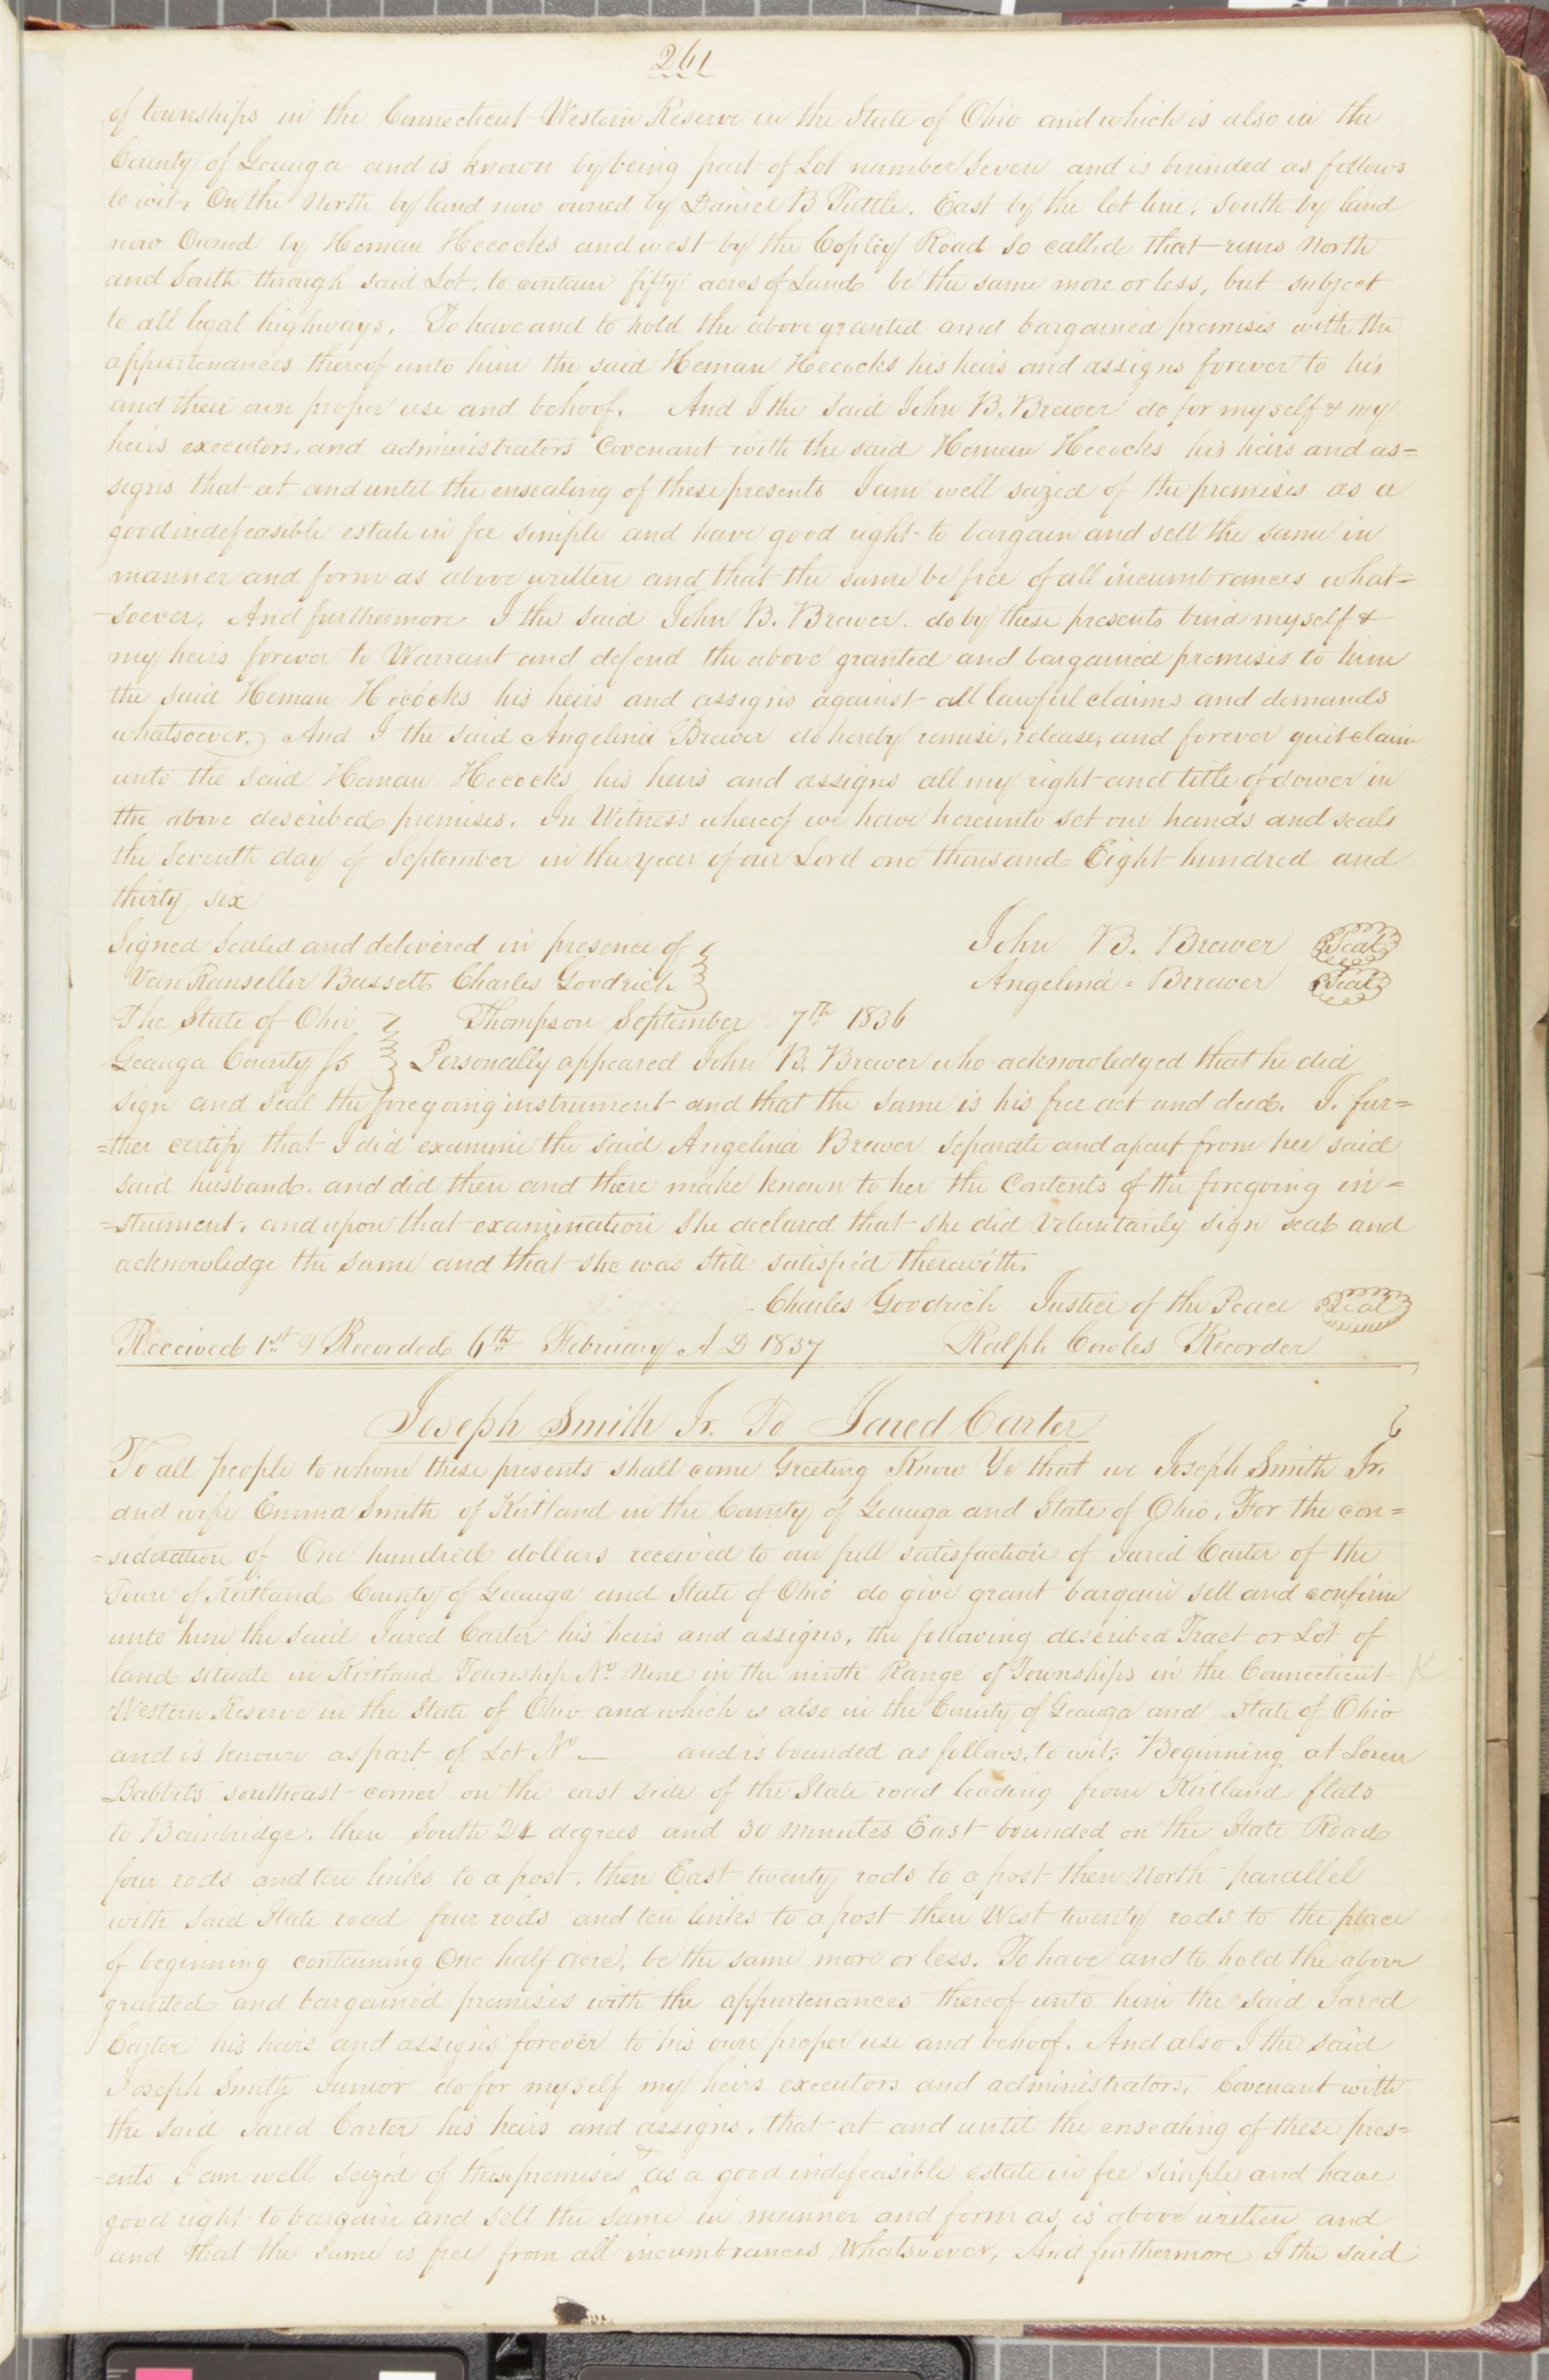 261
of townships in the Connecticut Western Reserve in the State of Ohio and which is also in the
County of Geauga and is known by being part of Lot number Seven and is bounded as follows
to wit, On the North by land now owned by Daniel B Tuttle. East by the lot line, South by land
now Owned by Heman Hecocks and west by the Copley Road so called that runs North
and South through said Lot, to contain fifty acres of Land be the same more or less, but subject
to all legal highways. To have and to hold the above granted and bargained premises with the
appurtenances thereof unto him the said Heman Hecocks his heirs and assigns forever to his
and their own proper use and behoof. And I the said John B. Brewer do for myself & my
heirs executors, and administrators Covenant with the said Heman Hecocks his heirs and as=
signs that at and until the ensealing of these presents I am well seized of the premises as a
good indefeasible estate in fee simple and have good right to bargain and sell the same in
manner and form as above written and that the same be free of all incumbrances what=
-soever, And furthermore I the said John B. Brewer. do by these presents bind myself &
my heirs forever to Warrant and defend the above granted and bargained premises to him
the said Heman Hecocks his heirs and assigns against all lawful claims and demands
whatsoever. And I the said Angelina Brewer do hereby remise, release, and forever quitclaim
unto the said Heman Hecocks his heirs and assigns all my right and title of dower in
the above described premises. In Witness whereof we have hereunto set our hands and seals
the Seventh day of September in the year of our Lord one thousand Eight hundred and
thirty six
Signed Sealed and delivered in presence of John B. Brewer Seal
Van Ranseller Bassett Charles Goodrich Angelina Brewer Seal
The State of Ohio Thompson September 7th 1836
Geauga County Ss Personally appeared John B. Brewer who acknowledged that he did
sign and Seal the foregoing instrument and that the same is his free act and deed. I. fur=
=ther certify that I did examine the said Angelina Brewer Separate and apart from her said
said husband. and did then and there make known to her the Contents of the foregoing in=
=strument. and upon that examination She declared that she did Voluntarily sign seal and
acknowledge the same and that she was Still satisfied therewith.
Charles Goodrich Justice of the Peace Seal
Received 1st & Recorded 6th February A D 1837 Ralph Cowles Recorder
Joseph Smith Jr. To Jared Carter
To all people to whom these presents shall come Greeting Know Ye that we Joseph Smith Jr.
and wife Emma Smith of Kirtland in the County of Geauga and State of Ohio, For the con=
=sideration of One hundred dollars received to our full satisfaction of Jared Carter of the
Town of Kirtland County of Geauga and State of Ohio do give grant bargain sell and confirm
unto him the said Jared Carter his heirs and assigns, the following described Tract or Lot of
land situate in Kirtland Township No. Nine in the ninth Range of Townships in the Connecticut
Western Reserve in the State of Ohio and which is also in the County of Geauga and State of Ohio
and is known as part of Lot No — and is bounded as follows, to wit: Beginning at Loren
Babbits southeast corner on the east side of the State road leading from Kirtland flats
to Bainbridge. then South 24 degrees and 30 Minutes East bounded on the State Road
four rods and ten links to a post, then East twenty rods to a post then North parallel
with said State road four rods and ten links to a post then West twenty rods to the place
of beginning containing One half acre, be the same more or less. To have and to hold the above
granted and bargained premises with the appurtenances thereof unto him the said Jared
Carter his heirs and assigns forever to his own proper use and behoof. And also I the said
Joseph Smith Junior do for myself my heirs executors and administrators, Covenant with
the said Jared Carter his heirs and assigns, that at and until the ensealing of these pres=
-ents I am well seized of these premises & as a good indefeasible estate in fee simple and have
good right to bargain and sell the same in manner and form as is above written and
and that the same is free from all incumbrances Whatsoever, And furthermore I the said